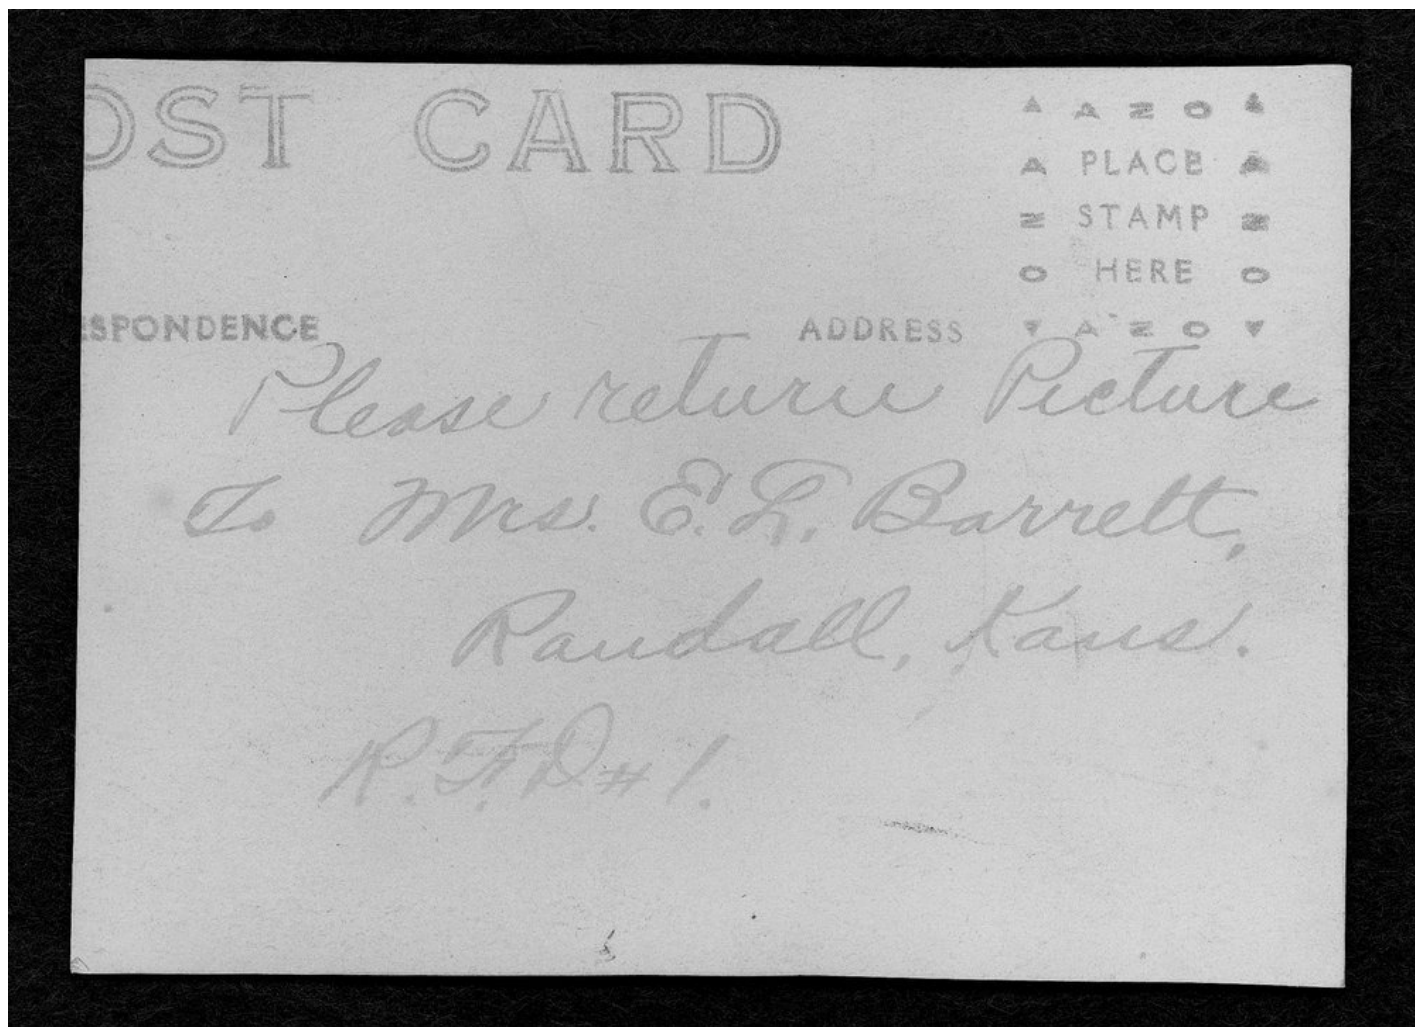 OST CARD
AZO
A PLACE A
N STAMP N
O HERE O
AZO
SPONDENCE
ADDRESS
Please return Picture
To Mrs. E. L. Barrett,
Randall, Kans.
R.F.D # 1.